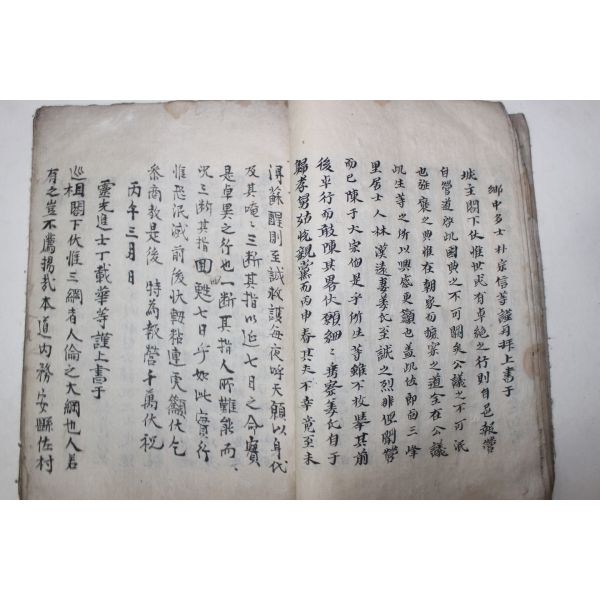 鄕中多士 朴宗信等謹再拜上書于
城主閤下伏惟世或有卓絶之行則自邑報營
自營道啓此國典之不可闕矣公議之不可泯
也強褒之典雖在朝家而採察之道全在公議
此生等之所以興感更籲也盖此佐郎面三峰
里居士人林漢遠妻姜氏至誠之烈非但關營
而已陳于大宗伯是乎所生等雖不枚擧其前
後卓行而敢陳其畧伏願細細考察姜氏自于
歸孝舅姑悅親黨而丙申春其夫不幸竟至未
得蘇醒則至誠救護每夜呼天願以身代
及其唵唵三断其指以延七日之命實
是卓異之行也一断其指人所難能而
况三断其指回甦七日乎如此實行
惟恐泯滅前後狀軸粘連更籲伏乞
參商敎是後 特爲報營千萬伏祝
丙午三月 日
靈光進士丁載華等謹上書于
巡相閤下伏惟三綱者人倫之大綱也人若
有之豈不薦揚哉本道內務安縣佐村